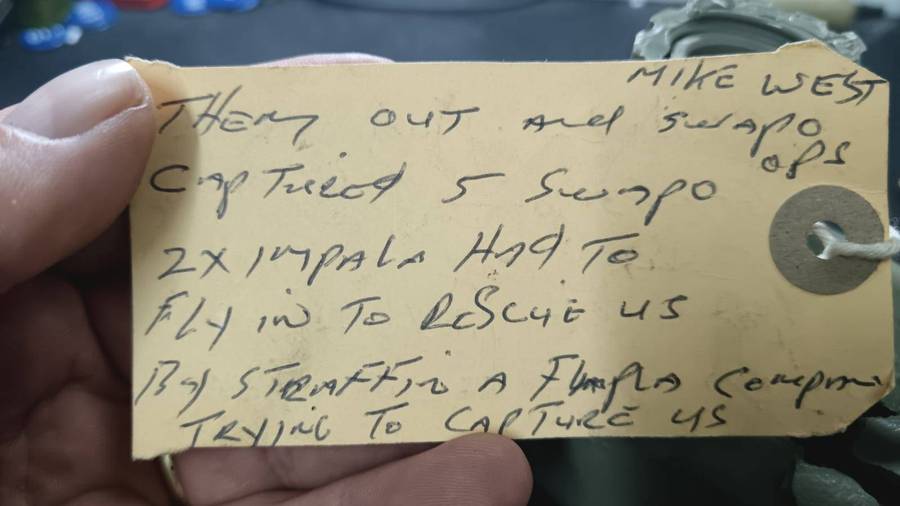 MIKE WEST
THEM OUT and SWAPO
OPS
CAPTURED 5 SWAPO
2X IMPALA HAD TO
FLY IN TO RESCUE US
By STRAFFIN A FLAPLA COMPAN
TRYING TO CAPTURE US